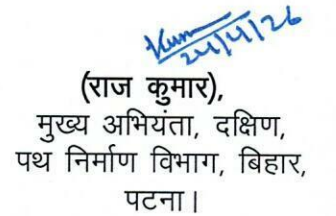 24/4/26
(राज कुमार),
मुख्य अभियंता, दक्षिण,
पथ निर्माण विभाग, बिहार,
पटना।